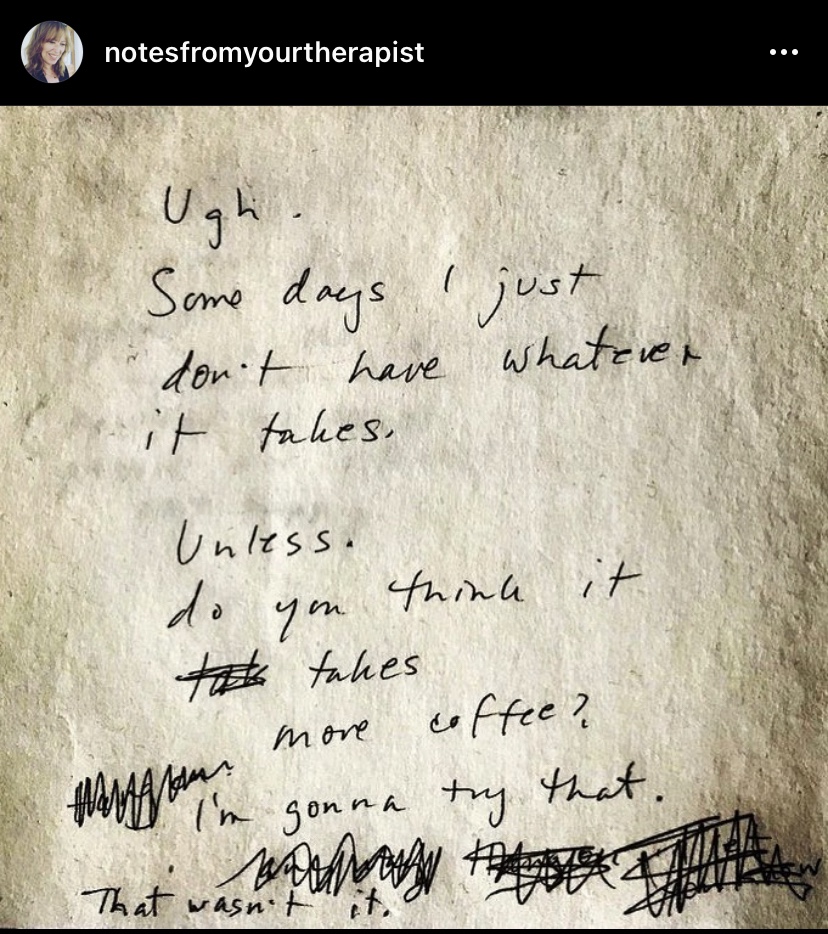 notesfromyourtherapist
Ugh.
Some days I just
don't have whatever
it takes.
Unless.
do you think it
takes
more coffee?
I'm gonna try that.
That wasn't it.